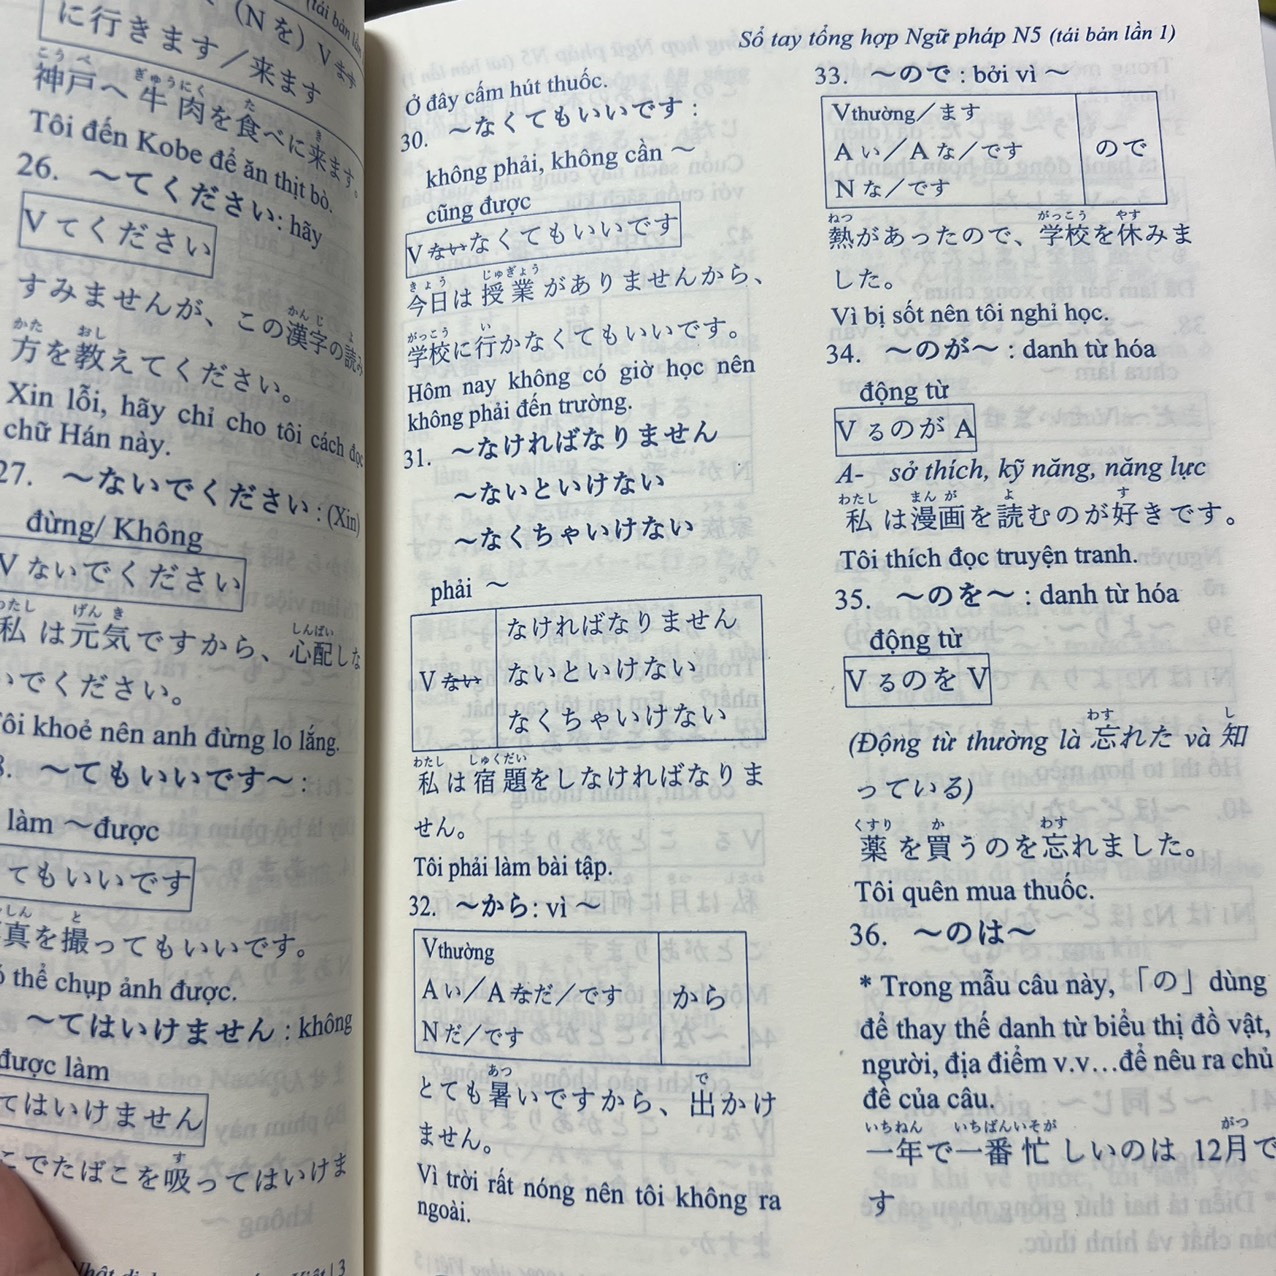 (tái bản lần
(N を) V ます
に行きます／来ます
こうべ ぎゅうにく た き
神戸へ牛肉を食べに来ます。
Tôi đến Kobe để ăn thịt bò.
26. ～てください: hãy
V てください
かんじ よ
すみませんが、この漢字の読み
かた おし
方を教えてください。
Xin lỗi, hãy chỉ cho tôi cách đọc
chữ Hán này.
27. ～ないでください : (Xin)
đừng/ Không
V ないでください
わたし げんき しんぱい
私は元気ですから、心配しな
いでください。
Tôi khoẻ nên anh đừng lo lắng.
8. ～てもいいです～ :
làm ～được
てもいいです
しん と
真を撮ってもいいです。
thể chụp ảnh được.
～てはいけません : không
được làm
てはいけません
す
こでたばこを吸ってはいけま
Sổ tay tổng hợp Ngữ pháp N5 (tái bản lần 1)
Ở đây cấm hút thuốc.
30. ～なくてもいいです :
không phải, không cần ～
cũng được
V ない なくてもいいです
きょう じゅぎょう
今日は授業がありませんから、
がっこう い
学校に行かなくてもいいです。
Hôm nay không có giờ học nên
không phải đến trường.
31. ～なければなりません
～ないといけない
～なくちゃいけない
phải ～
なければなりません
V ない ないといけない
なくちゃいけない
わたし しゅくだい
私は宿題をしなければなりま
せん。
Tôi phải làm bài tập.
32. ～から: vì ～
Vthường
A い／A なだ／です から
N だ／です
あつ で
とても暑いですから、出かけ
ません。
Vì trời rất nóng nên tôi không ra
ngoài.
33. ～ので : bởi vì ～
Vthường／ます
A い／A な／です ので
N な／です
ねつ がっこう やす
熱があったので、学校を休みま
した。
Vì bị sốt nên tôi nghỉ học.
34. ～のが～ : danh từ hóa
động từ
V るのが A
A- sở thích, kỹ năng, năng lực
わたし まんが よ す
私は漫画を読むのが好きです。
Tôi thích đọc truyện tranh.
35. ～のを～ : danh từ hóa
động từ
V るのを V
わす し
(Động từ thường là 忘れた và 知
っている)
くすり か わす
薬を買うのを忘れました。
Tôi quên mua thuốc.
36. ～のは～
* Trong mẫu câu này, 「の」 dùng
để thay thế danh từ biểu thị đồ vật,
người, địa điểm v.v…để nêu ra chủ
đề của câu.
いちねん いちばんいそが がつ
一年で一番忙しいのは 12月で
す